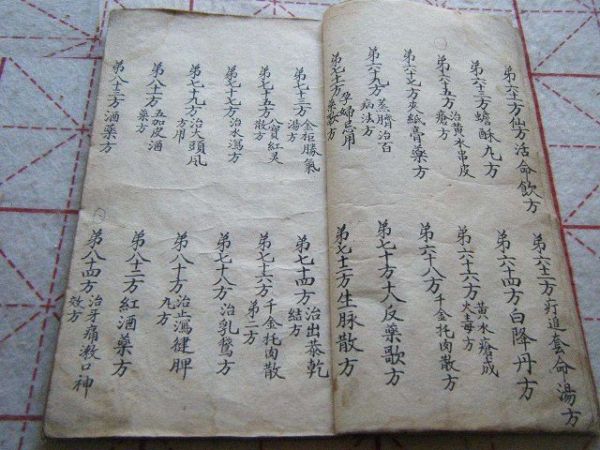 第六十一方仙方活命飲方
第六十二方疔追套命湯方
第六十三方蟾酥九方
第六十四方白降丹方
第六十五方治黃水串皮瘡方
第六十六方黃水瘡成火毒方
第六十七方皮紙膏藥方
第六十八方千金托肉散方
第六十九方蒸臍治百病法方
第七十方十八反藥歌方
第七十一方孕婦忌用藥歌方
第七十二方生脉散方
第七十三方金柜勝氣湯方
第七十四方治出恭乾結方
第七十五方八寶紅灵散方
第七十六方千金托肉散第二方
第七十七方治水瀉方
第七十八方治乳鵞方
第七十九方治火頭風方用
第八十方治止瀉健脾九方
第八十一方五加皮酒藥方
第八十二方紅酒藥方
第八十三方酒藥方
第八十四方治牙痛殺口神效方